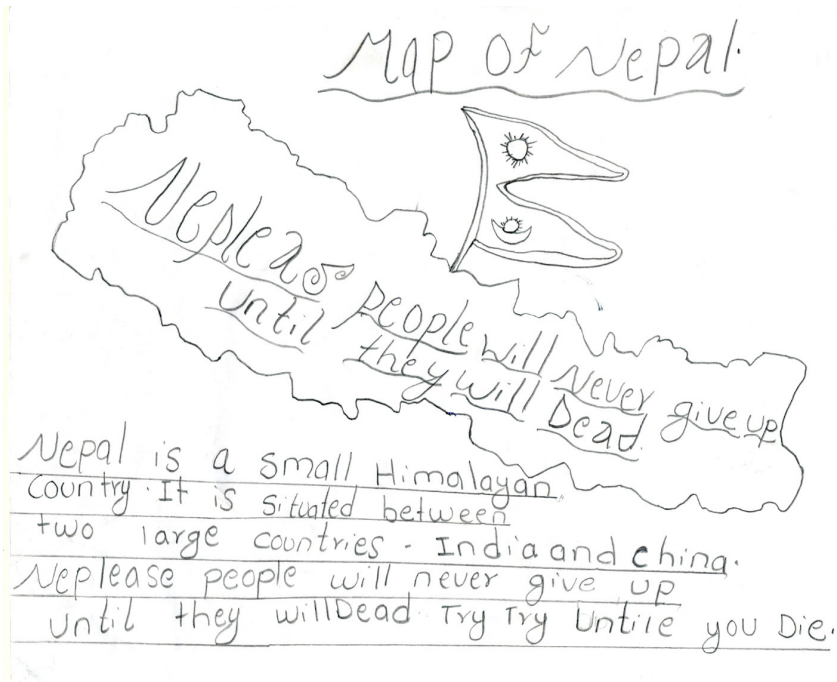 Map Of Nepal.
Nepleas people will Never give up
until they will Dead.
Nepal is a small Himalayan
Country. It is situated between
two large countries - India and china.
Neplease people will never give up
until they will Dead Try Try Untile you Die.